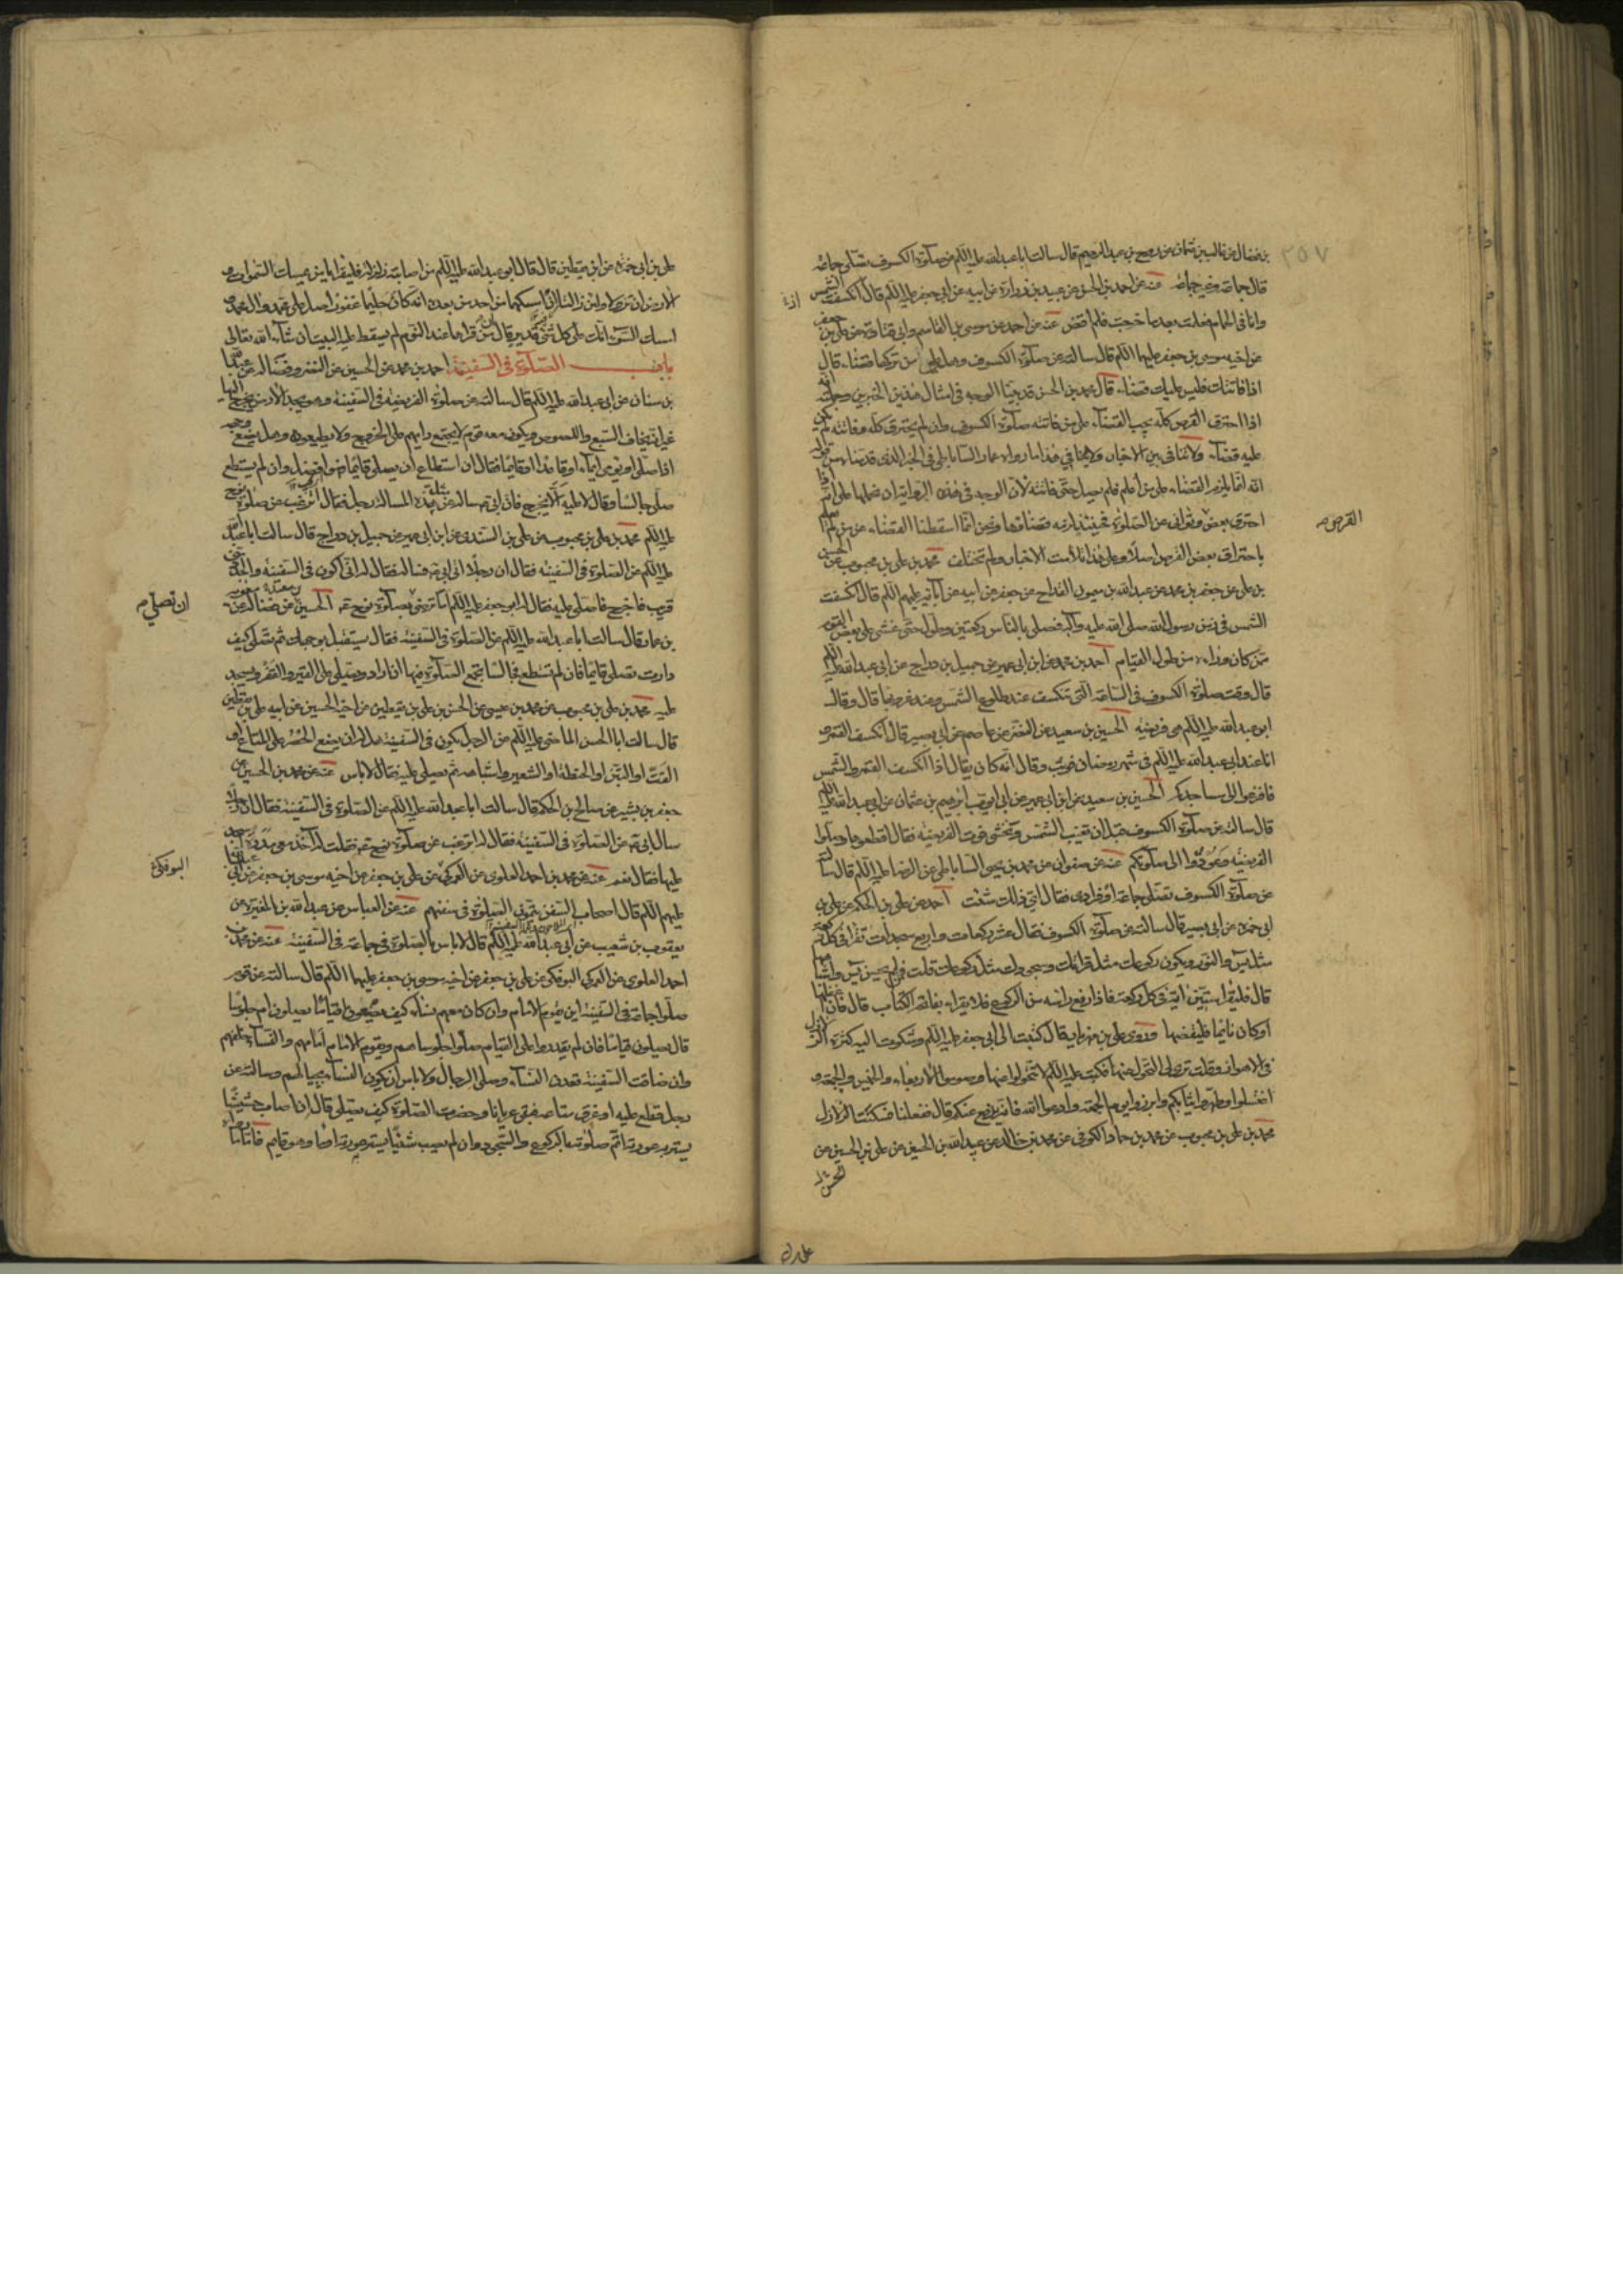 ٢٥٧
بن فضال عن غالب بن عثمان عن روح بن عبد الرحيم قال سالت ابا عبد الله عليه السلم عن صلوة الكسوف تصلى جماعة
قال جماعة وغير جماعة عنه عن احمد بن الحسن عن عبيد بن زرارة عن ابيه عن ابي جعفر عليه السلم قال انكسفت الشمس
وانا في الحمام فعلمت بعد ما خرجت فلم اقض عنه عن احمد عن موسى بن القاسم وابي قتادة عن علي بن جعفر
عن اخيه موسى بن جعفر عليهما السلم قال سالته عن صلوة الكسوف وهل على من تركها قضاء قال
اذا فاتتك فليس عليك قضاء قال محمد بن الحسن قد بينا الوجه في امثال هذين الخبرين وجملته انه
اذا احترق القرص كله يجب القضاء على من فاتته صلوة الكسوف وان لم يحترق كله وفاتته لم يكن
عليه قضاء ولا تنافي بين الاخبار ولا ينافي هذا ما رواه عمار الساباطي في الخبر الذي قدمناه من قوله
انه انما يلزم القضاء على من اعلم فلم يصل حتى فاتته لان الوجه في هذه الرواية ان نحملها على انه اذا
احترق بعض وتوانى عن الصلوة فحينئذ يلزمه قضاؤها ونحن انما اسقطنا القضاء عن من لم يعلم
القرص
باحتراق بعض القرص اصلا وعلى هذا تلاءمت الاخبار ولم تختلف محمد بن علي بن محبوب عن الحسين
بن علي عن جعفر بن محمد عن عبد الله بن ميمون القداح عن جعفر عن ابيه عن آبائه عليهم السلم قال انكسفت
الشمس في زمن رسول الله صلى الله عليه وآله فصلى بالناس ركعتين وطول حتى غشي على بعض القوم
ممن كان وراءه من طول القيام احمد بن محمد عن ابن ابي عمير عن جميل بن دراج عن ابي عبد الله عليه السلم
قال وقت صلوة الكسوف في الساعة التي تنكسف عند طلوع الشمس وعند غروبها قال وقال
ابو عبد الله عليه السلم هي فريضة الحسين بن سعيد عن النضر عن عاصم عن ابي بصير قال انكسف القمر و
انا عند ابي عبد الله عليه السلم في شهر رمضان فوثب وقال انه كان يقال اذا انكسف القمر والشمس
فافزعوا الى مساجدكم الحسين بن سعيد عن ابن ابي عمير عن ابي ايوب ابرهيم بن عثمان عن ابي عبد الله عليه السلم
قال سالته عن صلوة الكسوف قبل ان تغيب الشمس وتخشى فوت الفريضة فقال اقطعوها وصلوا
الفريضة وعودوا الى صلوتكم عنه عن صفوان عن محمد بن يحيى الساباطي عن الرضا عليه السلم قال سالته
عن صلوة الكسوف تصلى جماعة او فرادى فقال اي ذلك شئت احمد عن علي بن الحكم عن علي بن
ابي حمزة عن ابي بصير قال سالته عن صلوة الكسوف فقال عشر ركعات واربع سجدات تقرا في كل ركعة
مثل يس والنور ويكون ركوعك مثل قراءتك وسجودك مثل ركوعك قلت فمن لم يحسن يس واشباهها
قال فليقرا ستين اية في كل ركعة فاذا رفع راسه من الركوع فلا يقرا بفاتحة الكتاب قال فان اغفلها
او كان نائما فليقضها وروى علي بن مهزيار قال كتبت الى ابي جعفر عليه السلم وشكوت اليه كثرة الزلازل
في الاهواز وقلت ترى لي التحول عنها فكتب عليه السلم لا تتحولوا عنها وصوموا الاربعاء والخميس والجمعة و
اغتسلوا وطهروا ثيابكم وابرزوا يوم الجمعة وادعوا الله فانه يرفع عنكم قال ففعلنا فسكنت الزلازل
محمد بن علي بن محبوب عن محمد بن حماد الكوفي عن محمد بن خالد عن عبيد الله بن الحسين عن علي بن الحسين عن
علي بن ابي حمزة عن ابن يقطين قال قال ابو عبد الله عليه السلم من اصابته زلزلة فليقرا يا من يمسك السموات و
الارض ان تزولا ولئن زالتا ان امسكهما من احد من بعده انه كان حليما غفورا صل على محمد وال محمد و
امسك عنا السوء انك على كل شئ قدير قال من قراها عند النوم لم يسقط عليه البيت ان شاء الله تعالى
باب الصلوة في السفينة احمد بن محمد عن الحسين عن النضر وفضالة عن عبد الله
بن سنان عن ابي عبد الله عليه السلم قال سالته عن صلوة الفريضة في السفينة وهو يجد الارض يخرج اليها
غير انه يخاف السبع واللصوص ويكون معه قوم لا يجتمع رايهم على الخروج ولا يطيعونه وهل يضع وجهه
اذا صلى او يومي ايماء او قاعدا او قائما فقال ان استطاع ان يصلي قائما فهو افضل وان لم يستطع
صلى جالسا وقال لا عليه الا يخرج فان ابي ع سأله عن مثل هذه المسالة رجل فقال اترغب عن صلوة نوح
عليه السلم محمد بن علي بن محبوب عن علي بن السندي عن ابن ابي عمير عن جميل بن دراج قال سالت ابا عبد الله
عليه السلم عن الصلوة في السفينة فقال ان رجلا اتى ابي ع فساله فقال له اني اكون في السفينة والجدد مني
قريب فاخرج فاصلي عليه فقال له ابو جعفر عليه السلم اما ترضى بصلوة نوح ع الحسين عن فضالة عن معوية
ان تصلي
بن عمار قال سالت ابا عبد الله عليه السلم عن الصلوة في السفينة فقال يستقبل بوجهك ثم تصلى كيف
دارت تصلى قائما فان لم تستطع فجالسا يجمع الصلوة فيها اذا اراد ويصلي على القير والقفر ويسجد
عليه محمد بن علي بن محبوب عن محمد بن عيسى عن الحسن بن علي بن يقطين عن اخيه الحسين عن ابيه علي بن يقطين
قال سالت ابا الحسن الماضي عليه السلم عن الرجل يكون في السفينة هل له ان يضع الحصر على المتاع او
القت او التبن او الحنطة او الشعير واشباهه ثم يصلي عليه فقال لا باس عنه عن محمد بن الحسين عن
جعفر بن بشير عن صالح بن الحكم قال سالت ابا عبد الله عليه السلم عن الصلوة في السفينة فقال ان رجلا
سال ابي ع عن الصلوة في السفينة فقال له اترغب عن صلوة نوح ع فقلت له آخذ معي مدرة اسجد
عليها فقال نعم عنه عن محمد بن احمد العلوي عن العمركي عن علي بن جعفر عن اخيه موسى بن جعفر عن ابيه
البوفكي
عليهم السلم قال اصحاب السفن يتمون الصلوة في سفنهم عنه عن العباس عن عبد الله بن المغيرة عن
يعقوب بن شعيب عن ابي عبد الله عليه السلم قال لا باس بالصلوة في جماعة في السفينة عنه عن محمد بن
احمد العلوي عن العمركي البوفكي عن علي بن جعفر عن اخيه موسى بن جعفر عليهما السلم قال سالته عن قوم
صلوا جماعة في السفينة اين يقوم الامام وان كان معهم نساء كيف يصنعون اقياما يصلون ام جلوسا
قال يصلون قياما فان لم يقدروا على القيام صلوا جلوسا هم ويقوم الامام امامهم والنساء خلفهم
وان ضاقت السفينة قعدن النساء وصلى الرجال ولا باس ان يكون النساء بحيالهم وسالته عن
رجل قطع عليه او غرق متاعه فبقي عريانا وحضرت الصلوة كيف يصلي قال ان اصاب حشيشا
يستر به عورته اتم صلوته بالركوع والسجود وان لم يصب شيئا يستر عورته اومأ وهو قائم